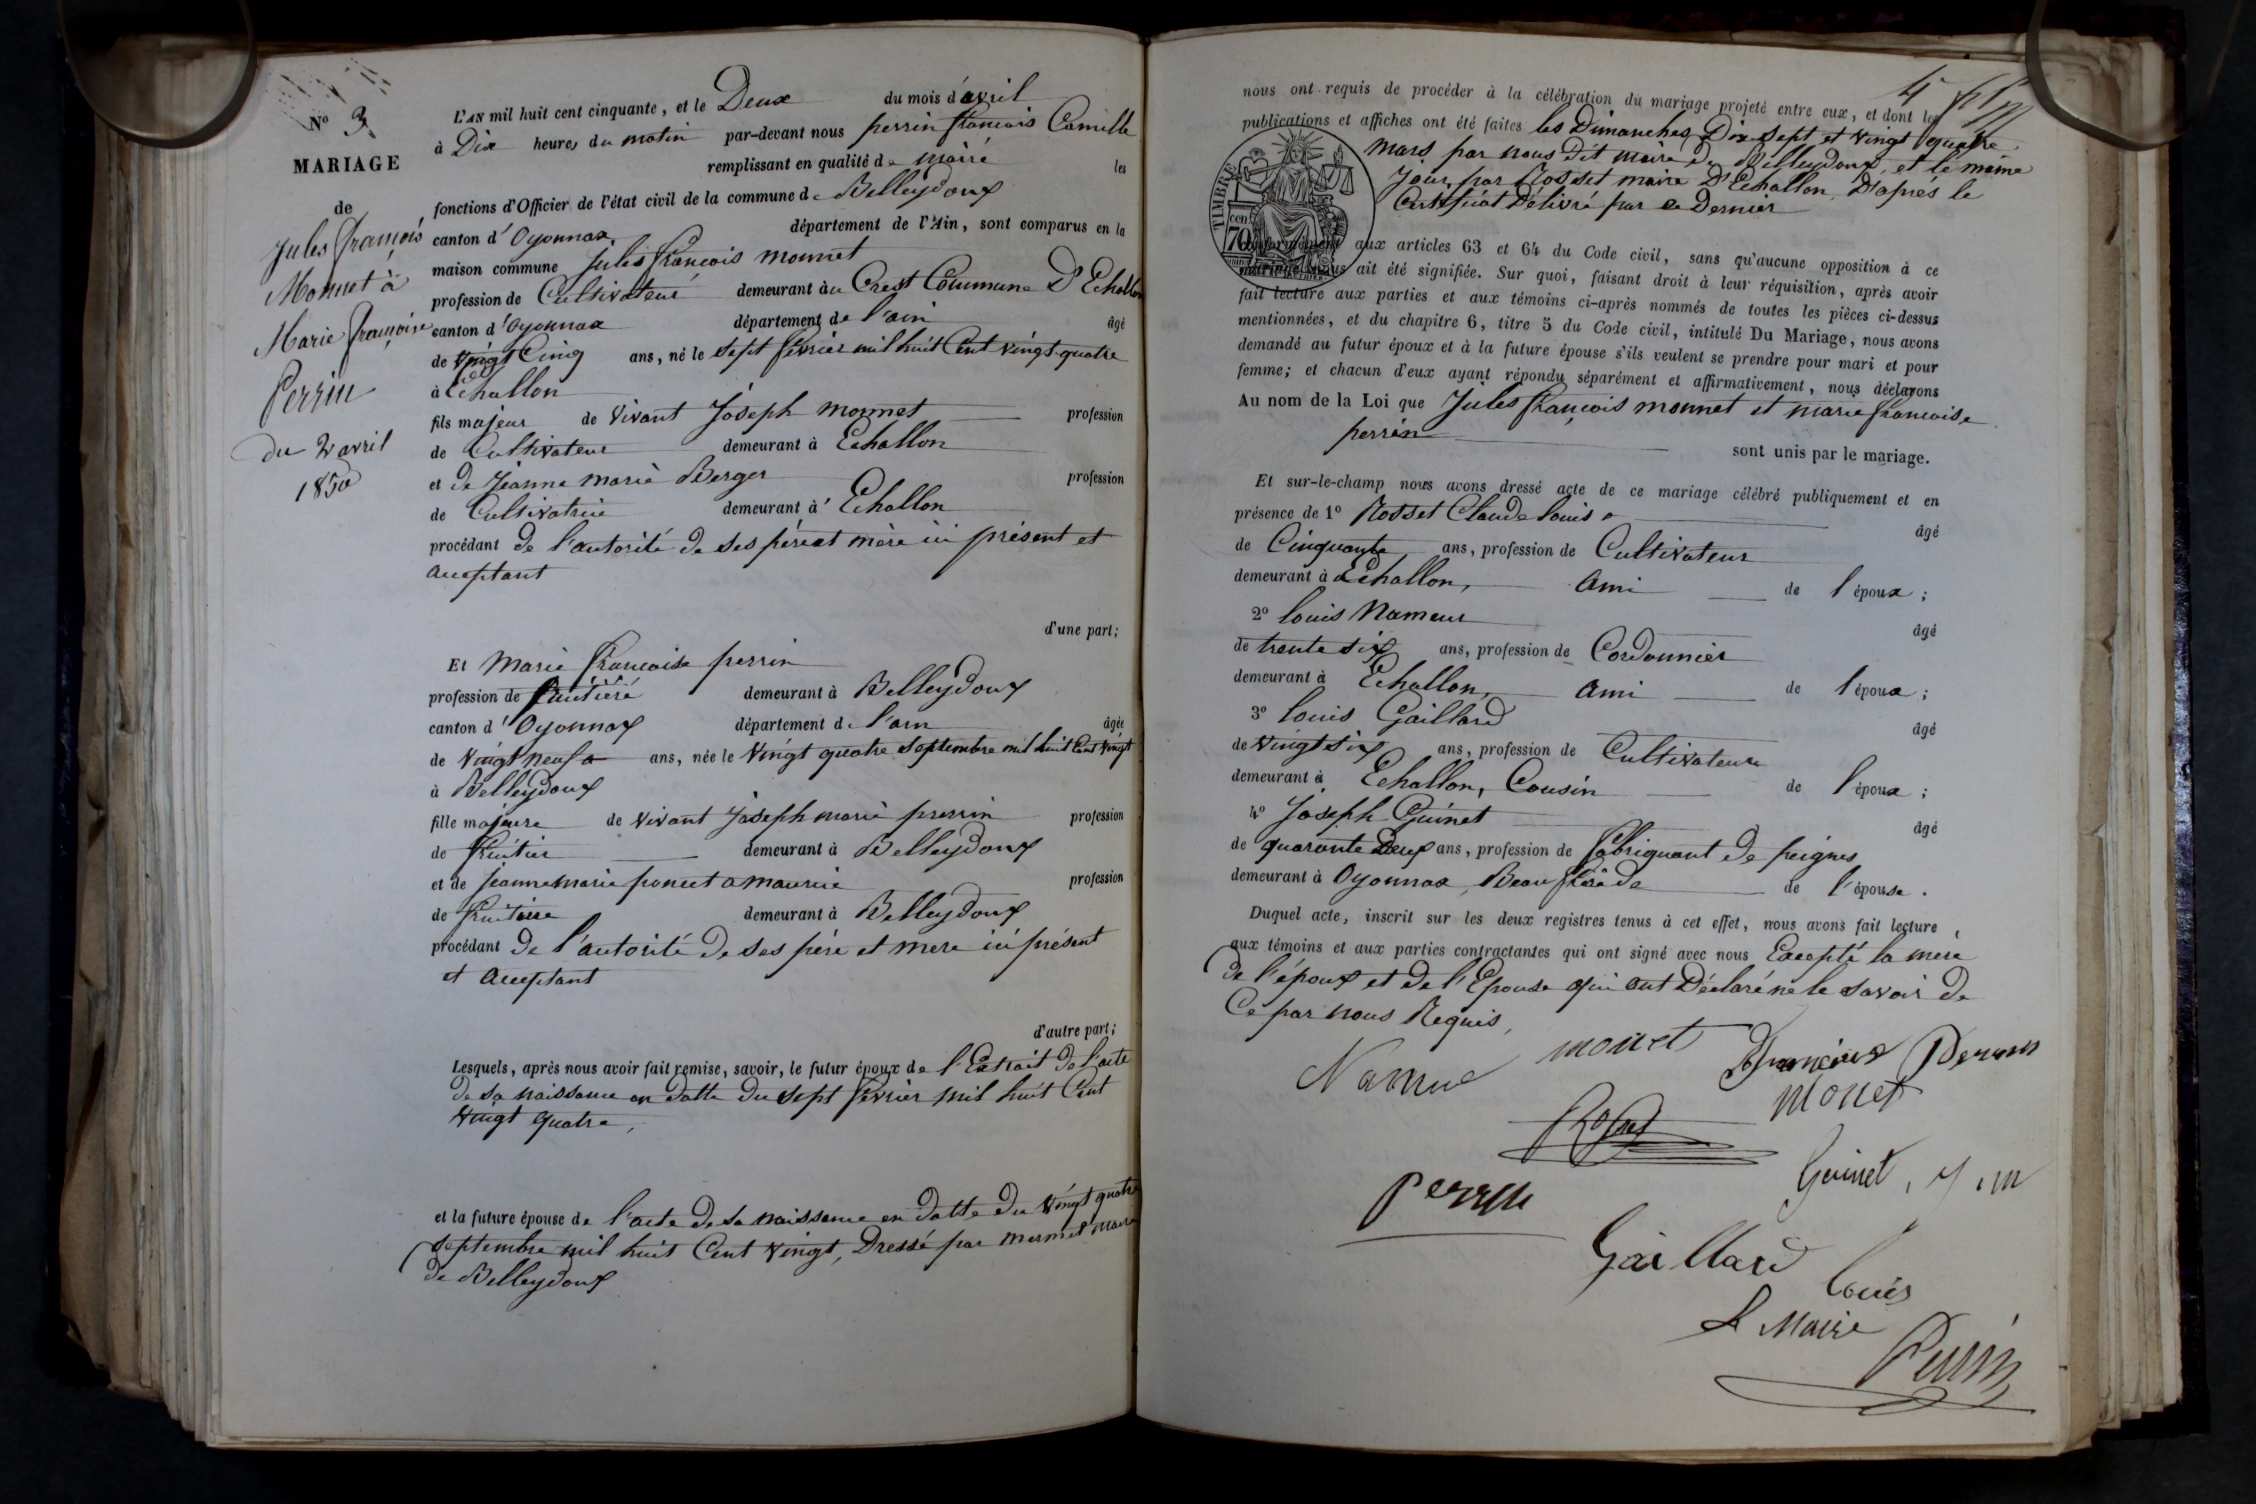 N° 3
MARIAGE
de
Jules François
Monnet à
Marie Françoise
Perrin
du 2 avril
1850
L'AN mil huit cent cinquante, et le Deux du mois d'avril
à Dix heures du matin par-devant nous perrin francois Camille
remplissant en qualité de maire les
fonctions d'Officier de l'état civil de la commune de Belleydoux
canton d'Oyonnax département de l'Ain, sont comparus en la
maison commune Jules francois monnet
profession de Cultivateur demeurant au Crest Commune D'Echallon
canton d'Oyonnax département de l'ain âgé
de vingt Cinq ans, né le sept février mil huit Cent vingt quatre
à Echallon
fils majeur de vivant Joseph monnet profession
de Cultivateur demeurant à Echallon
et de Jeanne marie Berger profession
de Cultivatrice demeurant à Echallon
procédant de l'autorité de ses pére et mère ici présent et
acceptant
d'une part;
Et marie francoise perrin
profession de fruitière demeurant à Belleydoux
canton d'Oyonnax département de l'ain âgée
de vingt neuf ans, née le vingt quatre septembre mil huit Cent vingt
à Belleydoux
fille majeure de vivant Joseph marie perrin profession
de fruitier demeurant à Belleydoux
et de Jeanne marie poncet a maurice profession
de fruitière demeurant à Belleydoux
procédant de l'autorité de ses père et mere ici présent
et acceptant
d'autre part;
Lesquels, après nous avoir fait remise, savoir, le futur époux de l'Extrait de l'acte
de sa naissance en datte du sept février mil huit Cent
vingt quatre,
et la future épouse de l'acte de sa naissance en datte du vingt quatre
septembre mil huit Cent vingt, Dressé par mermet maire
de Belleydoux
nous ont requis de procéder à la célébration du mariage projeté entre eux, et dont les
publications et affiches ont été faites les Dimanches Dix sept et vingt quatre
mars par nous Dit maire De Belleydoux, et le même
Jour par Rosset maire D'Echallon D'aprés le
Certificat Délivré par ce Dernier
TIMBRE
70
conformément aux articles 63 et 64 du Code civil, sans qu'aucune opposition à ce
mariage nous ait été signifiée. Sur quoi, faisant droit à leur réquisition, après avoir
fait lecture aux parties et aux témoins ci-après nommés de toutes les pièces ci-dessus
mentionnées, et du chapitre 6, titre 5 du Code civil, intitulé Du Mariage, nous avons
demandé au futur époux et à la future épouse s'ils veulent se prendre pour mari et pour
femme; et chacun d'eux ayant répondu séparément et affirmativement, nous déclarons
Au nom de la Loi que Jules françois monnet et marie francoise
perrin
sont unis par le mariage.
Et sur-le-champ nous avons dressé acte de ce mariage célébré publiquement et en
présence de 1° Rosset Claude louis âgé
de Cinquante ans, profession de Cultivateur
demeurant à Echallon, Ami de l'époux;
2° louis Nameur âgé
de trente six ans, profession de Cordonnier
demeurant à Echallon, Ami de l'époux;
3° louis Gaillard âgé
de vingt six ans, profession de Cultivateur
demeurant à Echallon, Cousin de l'époux;
4° Joseph Guinet âgé
de quarante Deux ans, profession de fabriquant de peignes
demeurant à Oyonnax, Beau frère de de l'épouse.
Duquel acte, inscrit sur les deux registres tenus à cet effet, nous avons fait lecture
aux témoins et aux parties contractantes qui ont signé avec nous Excepté la mère
de l'époux et de l'Epouse qui ont Déclaré ne le savoir de
Ce par nous Requis,
monet
Monet
Rosset
Guinet
Perrin
Gaillard
louis
Le Maire
Perrin